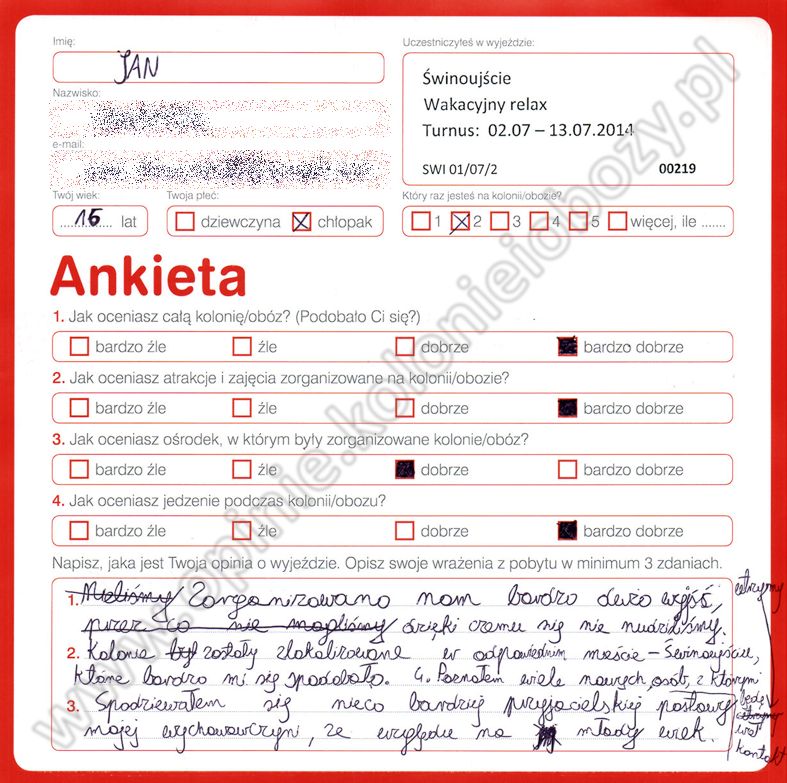 Imię:
JAN
Uczestniczyłeś w wyjeździe:
Świnoujście
Wakacyjny relax
Turnus: 02.07 – 13.07.2014
SWI 01/07/2 00219
Nazwisko:
e-mail:
Twój wiek:
15 lat
Twoja płeć:
dziewczyna chłopak
Który raz jesteś na kolonii/obozie?
1 2 3 4 5 więcej, ile .......
Ankieta
1. Jak oceniasz całą kolonię/obóz? (Podobało Ci się?)
bardzo źle źle dobrze bardzo dobrze
2. Jak oceniasz atrakcje i zajęcia zorganizowane na kolonii/obozie?
bardzo źle źle dobrze bardzo dobrze
3. Jak oceniasz ośrodek, w którym były zorganizowane kolonie/obóz?
bardzo źle źle dobrze bardzo dobrze
4. Jak oceniasz jedzenie podczas kolonii/obozu?
bardzo źle źle dobrze bardzo dobrze
Napisz, jaka jest Twoja opinia o wyjeździe. Opisz swoje wrażenia z pobytu w minimum 3 zdaniach.
1. Mieliśmy Zorganizowano nam bardzo dużo wyjść,
przez co nie mogliśmy dzięki czemu się nie nudziliśmy.
2. Kolonie był zostały zlokalizowane w odpowiednim mieście – Świnoujście,
które bardzo mi się spodobało. 4. Poznałem wiele nowych osób, z którymi
będę
utrzymy
wał
kontakt
3. Spodziewałem się nieco bardziej przyjacielskiej postawy
mojej wychowawczyni, ze względu na młody wiek.
www.opinie.kolonieiobozy.pl